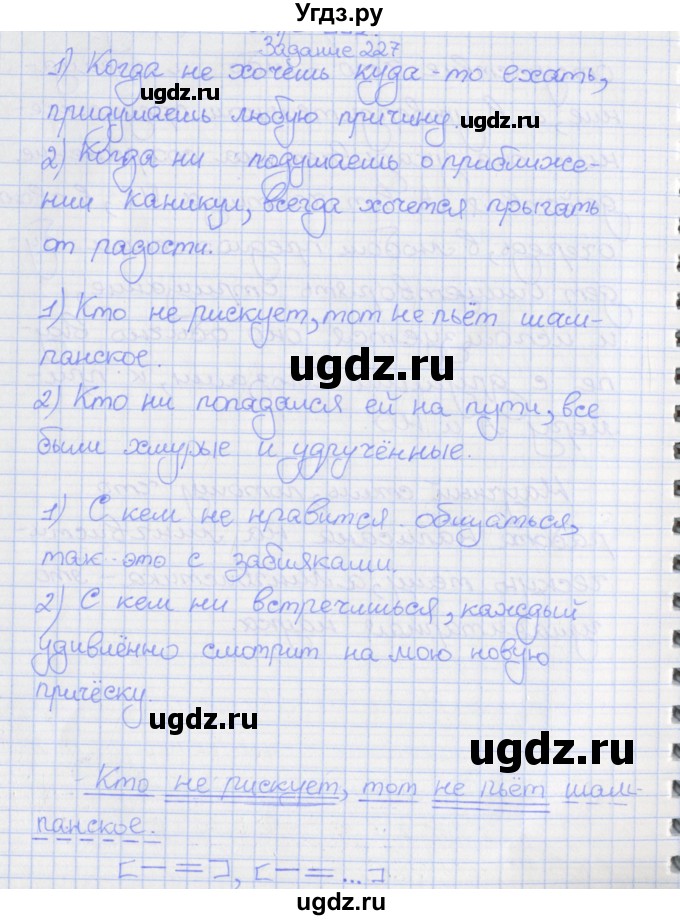 Угдз.ру
Задание 227
1) Когда не хочешь куда-то ехать,
ugdz.ru
придумаешь любую причину.
ugdz.ru
2) Когда ни подумаешь о приближе-
нии каникул, всегда хочется прыгать
от радости.
1) Кто не рискует, тот не пьёт шам-
панское.
ugdz.ru
2) Кто ни попадался ей на пути, все
были хмурые и удручённые.
1) С кем не нравится общаться,
так это с забияками.
2) С кем ни встречишься, каждый
удивлённо смотрит на мою новую
причёску.
ugdz.ru
ugdz.ru
Кто не рискует, тот не пьёт шам-
панское.
[— =], [— = ...]
ugdz.ru